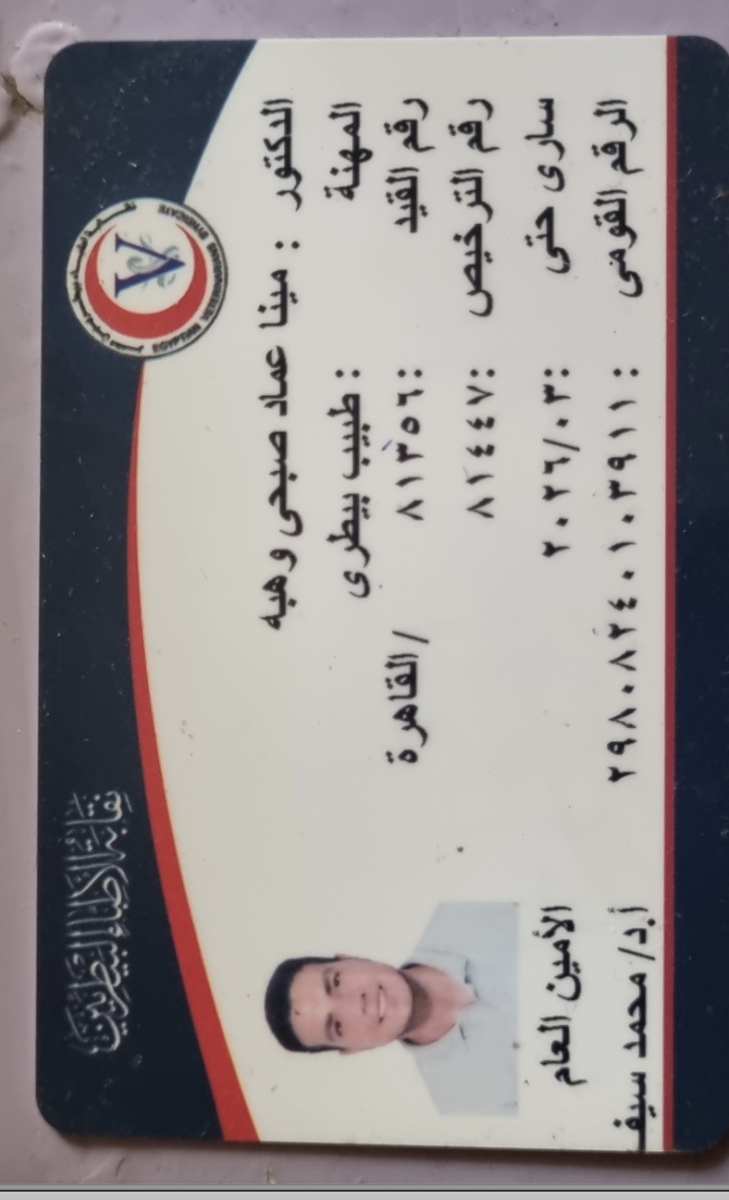 نقابة الأطباء البيطريين
EGYPTIAN VETERINARIANS SYNDICATE
الدكتور : مينا عماد صبحى وهبه
المهنة : طبيب بيطرى
رقم القيد : ٨١٣٥٦ / القاهرة
رقم الترخيص : ٨١٤٤٧
سارى حتى : ٢٠٢٦/٠٣
الرقم القومى : ٢٩٨٠٨٢٤٠١٠٣٩١١
الأمين العام
أ.د/ محمد سيف